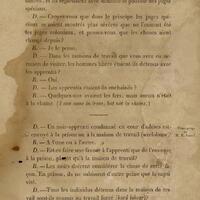 D. — Croyez-vous que dans le principe les juges spé-
ciaux se soient montrés plus sévères que ne l'eussent été
des juges coloniaux, et pensez-vous que les choses aient
changé depuis ?
R. — Je le pense.
D. — Dans les maisons de travail que vous avez eu oc-
casion de visiter, les hommes libres étaient-ils détenus avec
les apprentis ?
R. — Oui.
D. — Les apprentis étaient-ils enchaînés ?
R. — Quelques-uns avaient les fers, mais aucun n'était
à la chaîne
D. — Un non-apprenti condamné en cour d'assises est-
il envoyé à la prison ou à la maison de travail (workhouse) ?
R. — A l'une ou à l'autre.
D. — Est-ce faire une faveur à l'apprenti que de l'envoyer
à la prison, plutôt qu'à la maison de travail ?
R. — Les noirs doivent considérer la chose de cette fa-
çon. En prison, ils ne subissent d'autre peine que la capti-
vité.
D. — Tous les individus détenus dans la maison de tra-
vail sont-ils soumis au travail forcé (hard labour) ?